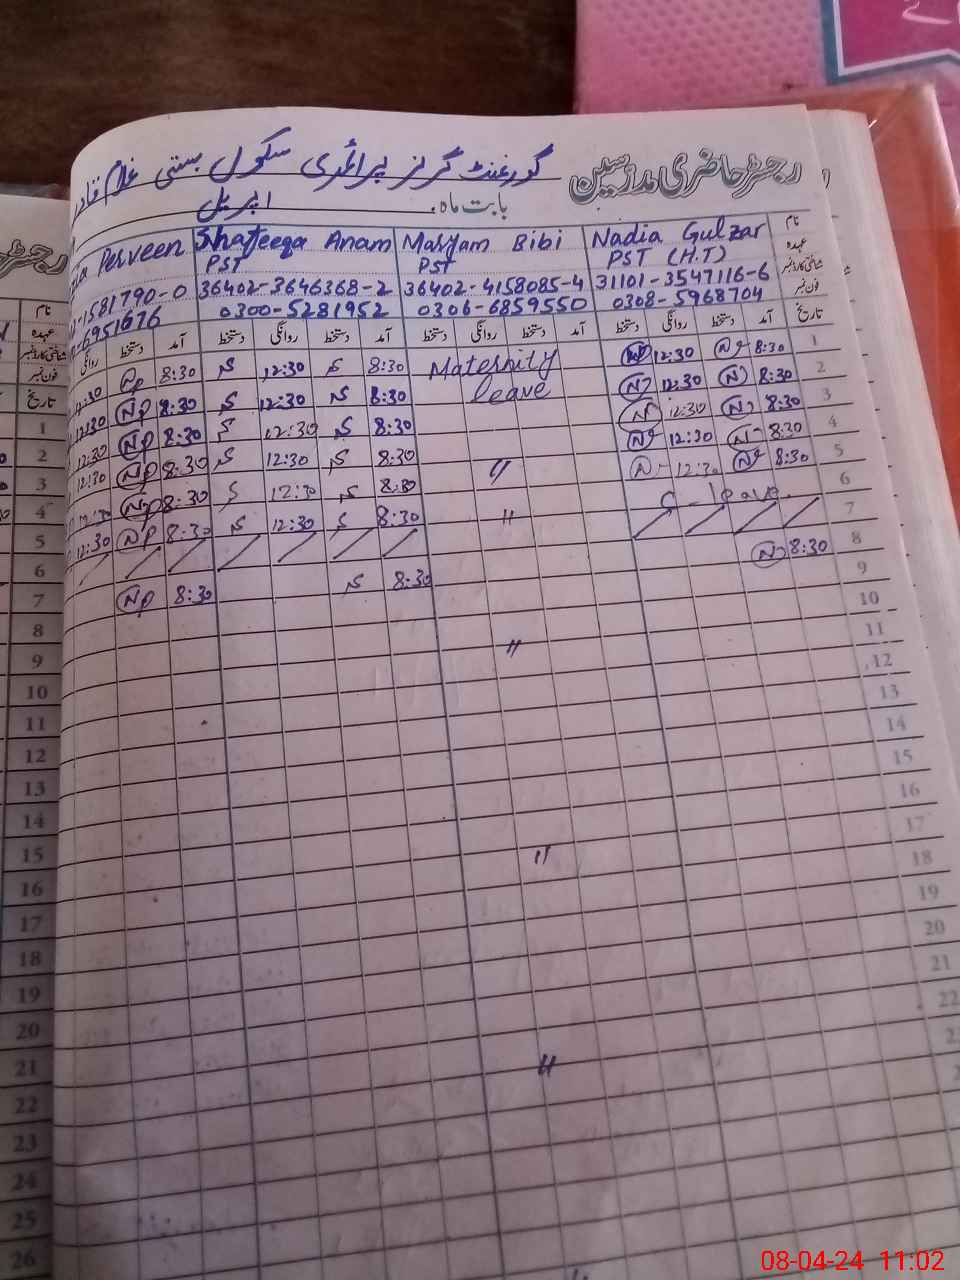 رجسٹر حاضری مدرسین گورنمنٹ گرلز پرائمری سکول بستی غلام قادر
بابت ماہ اپریل
نام Nadia Gulzar Maryam Bibi Shafeeqa Anam Perveen
عہدہ PST (H.T) PST PST
شناختی کارڈ نمبر 31101-3547116-6 36402-4158085-4 36402-3646368-2 -1581790-0
فون نمبر 0308-5968704 0306-6859550 0300-5281952 -6951676
تاریخ آمد دستخط روانگی دستخط آمد دستخط روانگی دستخط آمد دستخط روانگی دستخط آمد دستخط روانگی
1 8:30 12:30 Maternity 8:30 12:30 8:30 Np 12:30
2 8:30 12:30 leave 8:30 12:30 8:30 Np 12:30
3 8:30 12:30 8:30 12:30 8:30 Np 12:30
4 8:30 12:30 8:30 12:30 8:30 Np 12:30
5 8:30 12:30 " 8:30 12:30 8:30 Np 12:30
6 C-leave " 8:30 12:30 8:30 Np 12:30
7
8 8:30 8:30 8:30 Np
9
10 "
11
12
13
14
15
16
17 "
18
19
20
21
22
"
رجسٹر
نام
عہدہ
شناختی کارڈ نمبر
فون نمبر
تاریخ
1
2
3
4
5
6
7
8
9
10
11
12
13
14
15
16
17
18
19
20
21
22
23
24
25
26
08-04-24 11:02